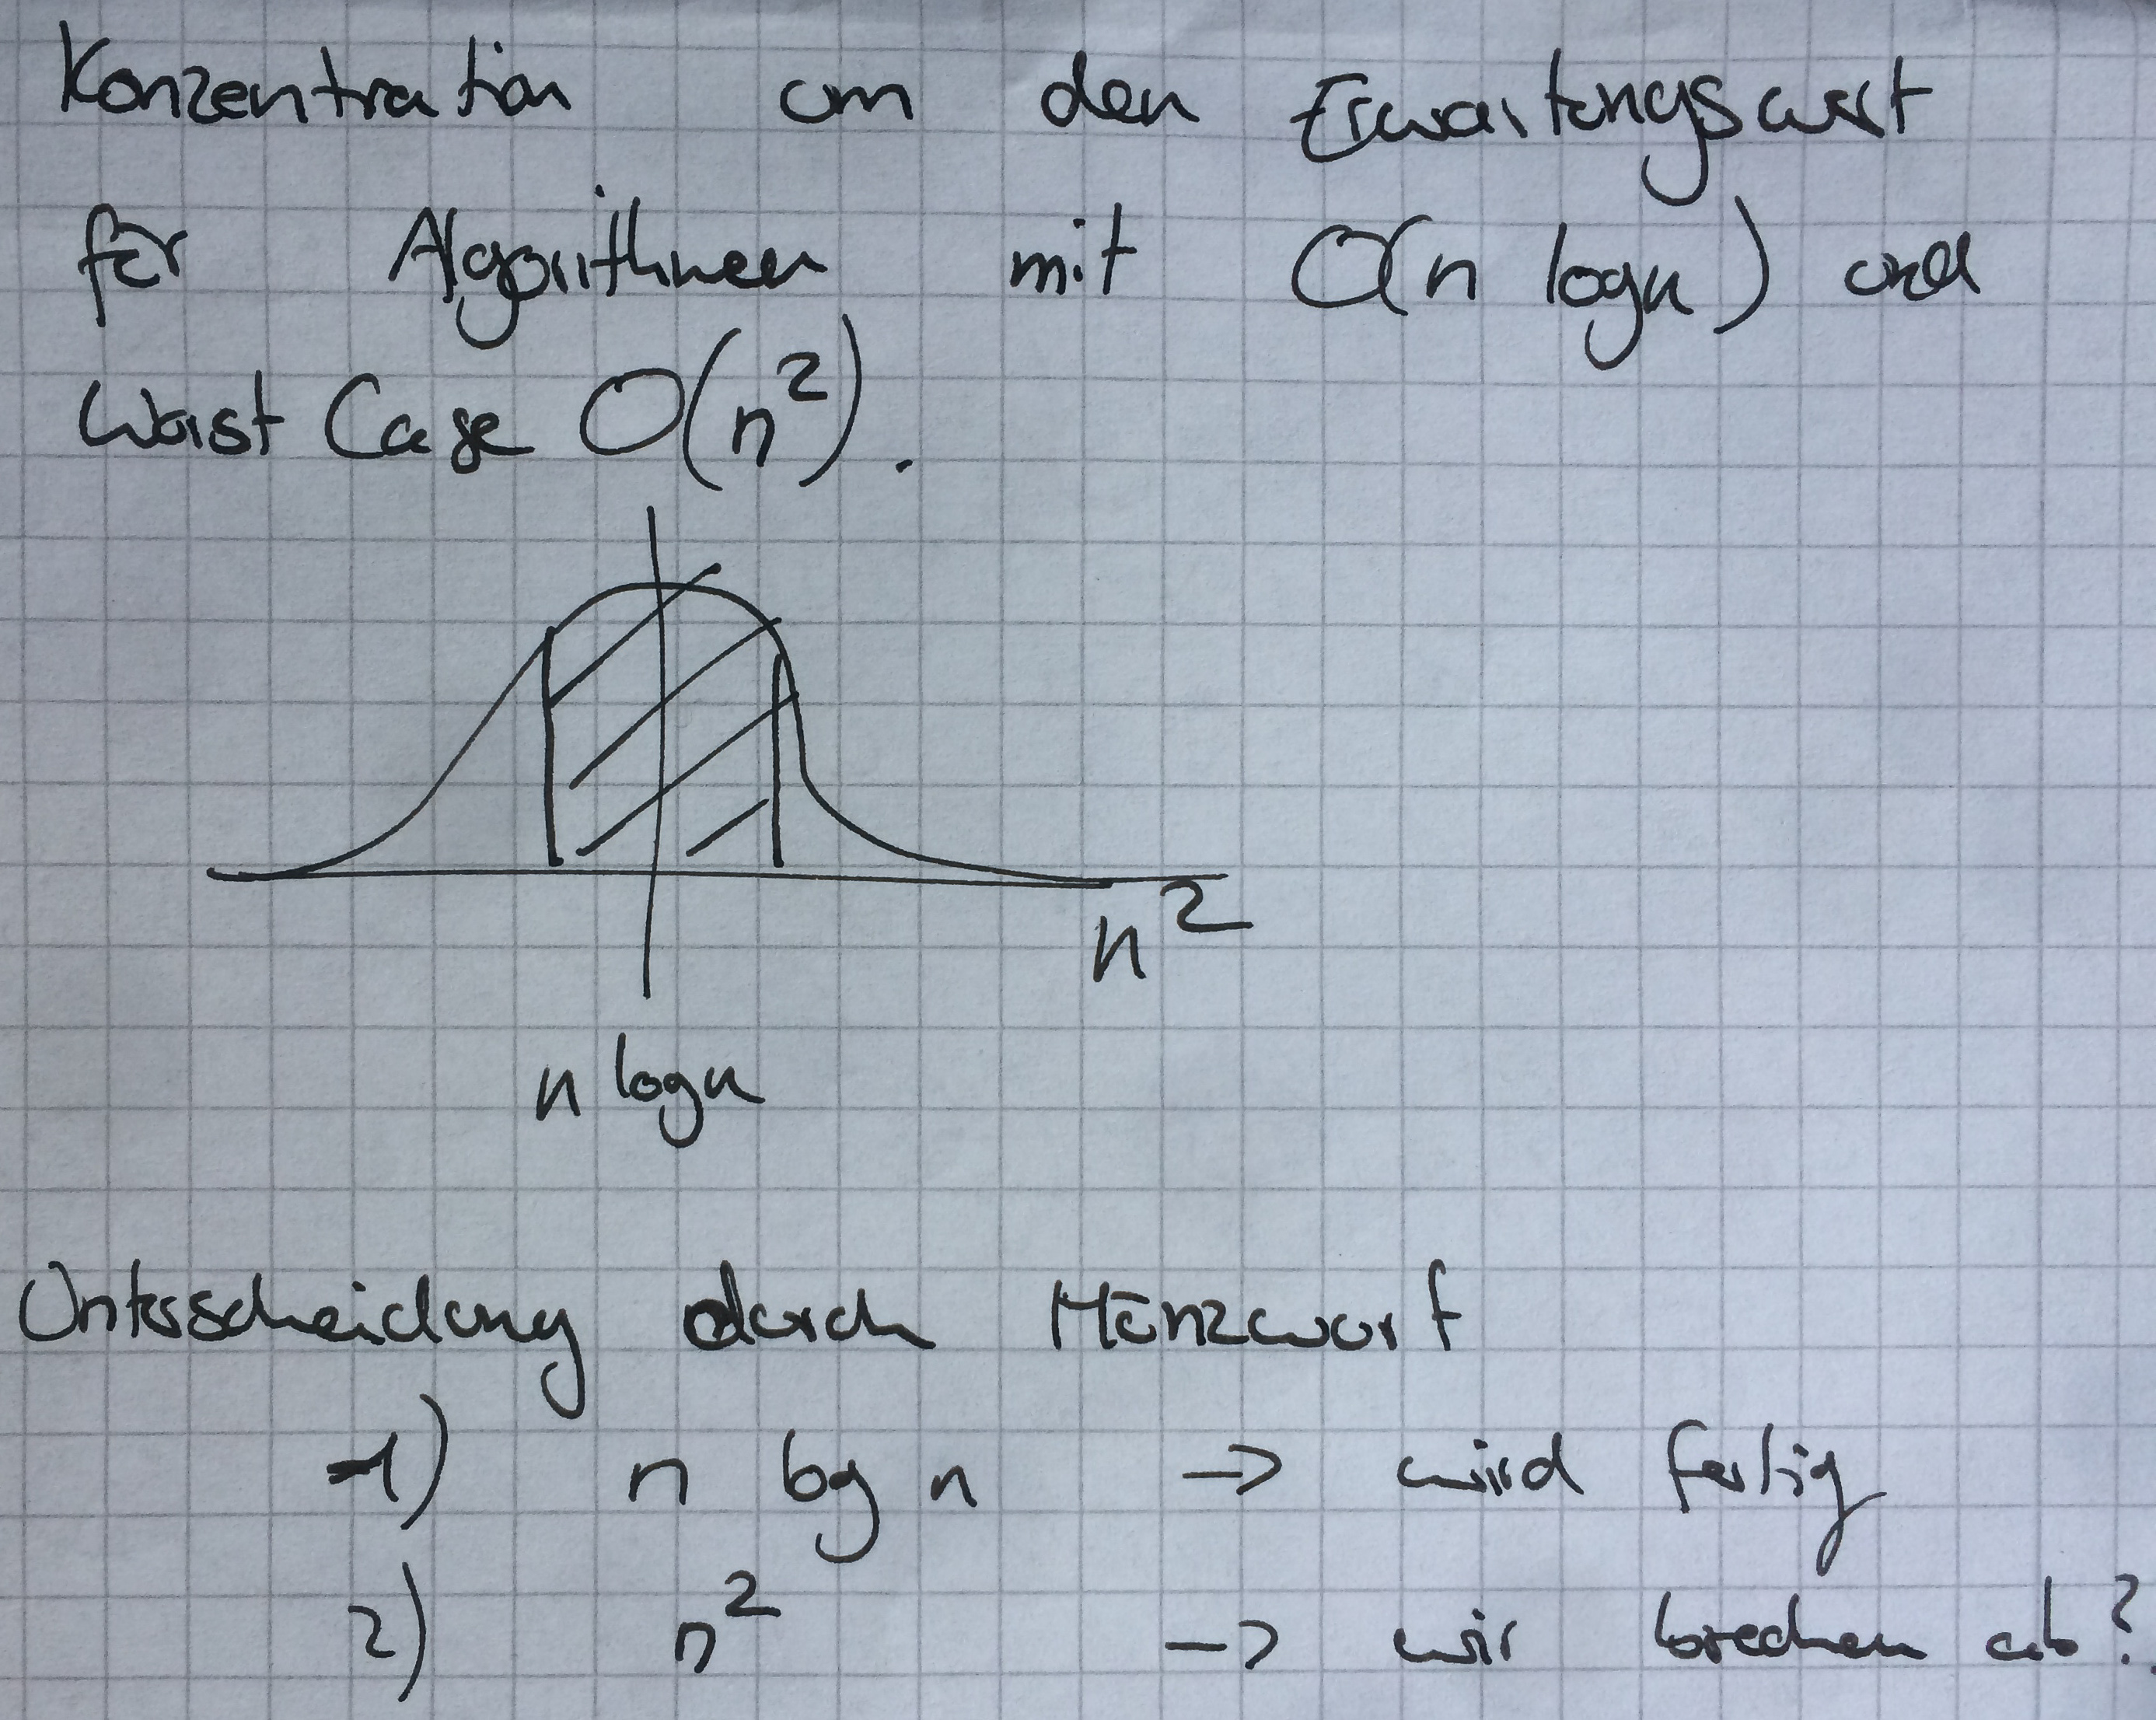 Konzentration um den Erwartungswert
für Algorithmen mit O(n log n) und
Worst Case O(n²).
n²
n log n
Unterscheidung durch Münzwurf
1) n log n -> wird fertig
2) n² -> wir brechen ab?